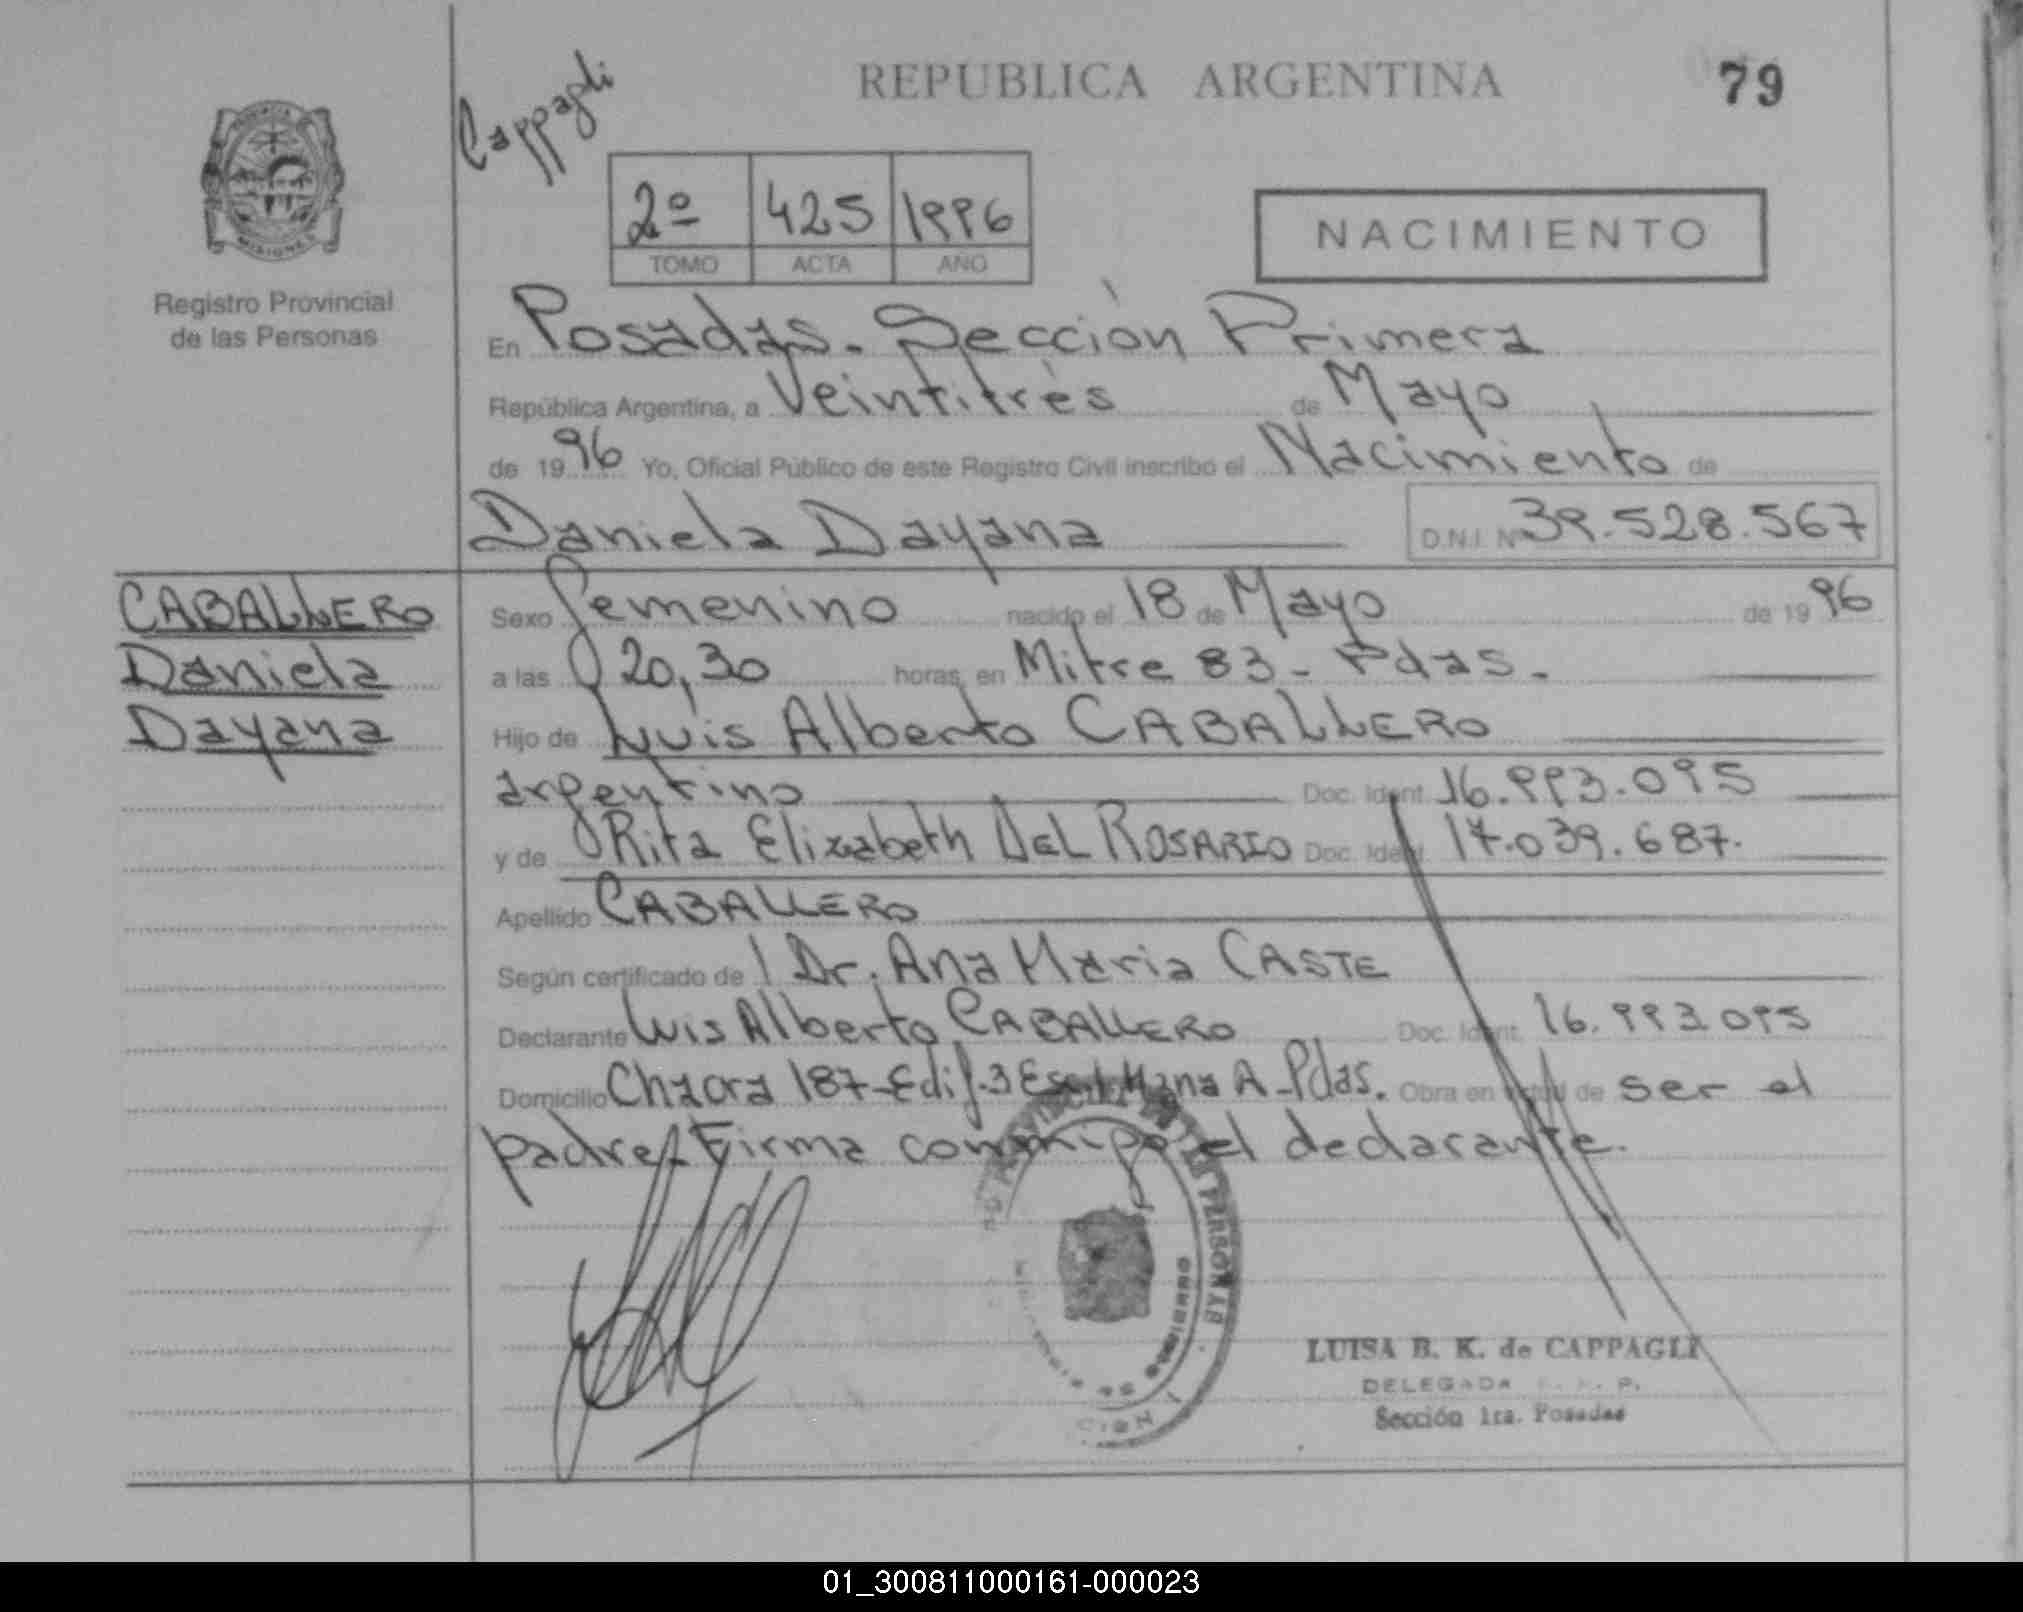 REPUBLICA ARGENTINA
79
Cappagli
2º 425 1996
TOMO ACTA AÑO
NACIMIENTO
MISIONES
Registro Provincial
de las Personas
En Posadas - Sección Primera
República Argentina, a Veintitrés de Mayo
de 1996 Yo, Oficial Público de este Registro Civil inscribo el Nacimiento de
Daniela Dayana D.N.I. Nº 39.528.567
CABALLERO
Daniela
Dayana
Sexo Femenino nacido el 18 de Mayo de 1996
a las 20,30 horas, en Mitre 83 - Pdas.-
Hijo de Luis Alberto CABALLERO
argentino Doc. Ident. 16.993.095
y de Rita Elizabeth DEL ROSARIO Doc. Ident. 17.039.687.
Apellido CABALLERO
Según certificado de Dr. Ana Maria CASTE
Declarante Luis Alberto CABALLERO Doc. Ident. 16.993.095
Domicilio Chacra 187-Edif.3 Mana A-Pdas. Obra en virtud de ser el
padre. Firma conmigo el declarante.
LUISA B. K. de CAPPAGLI
DELEGADA R. P.
Sección 1ra. Posadas
01_300811000161-000023